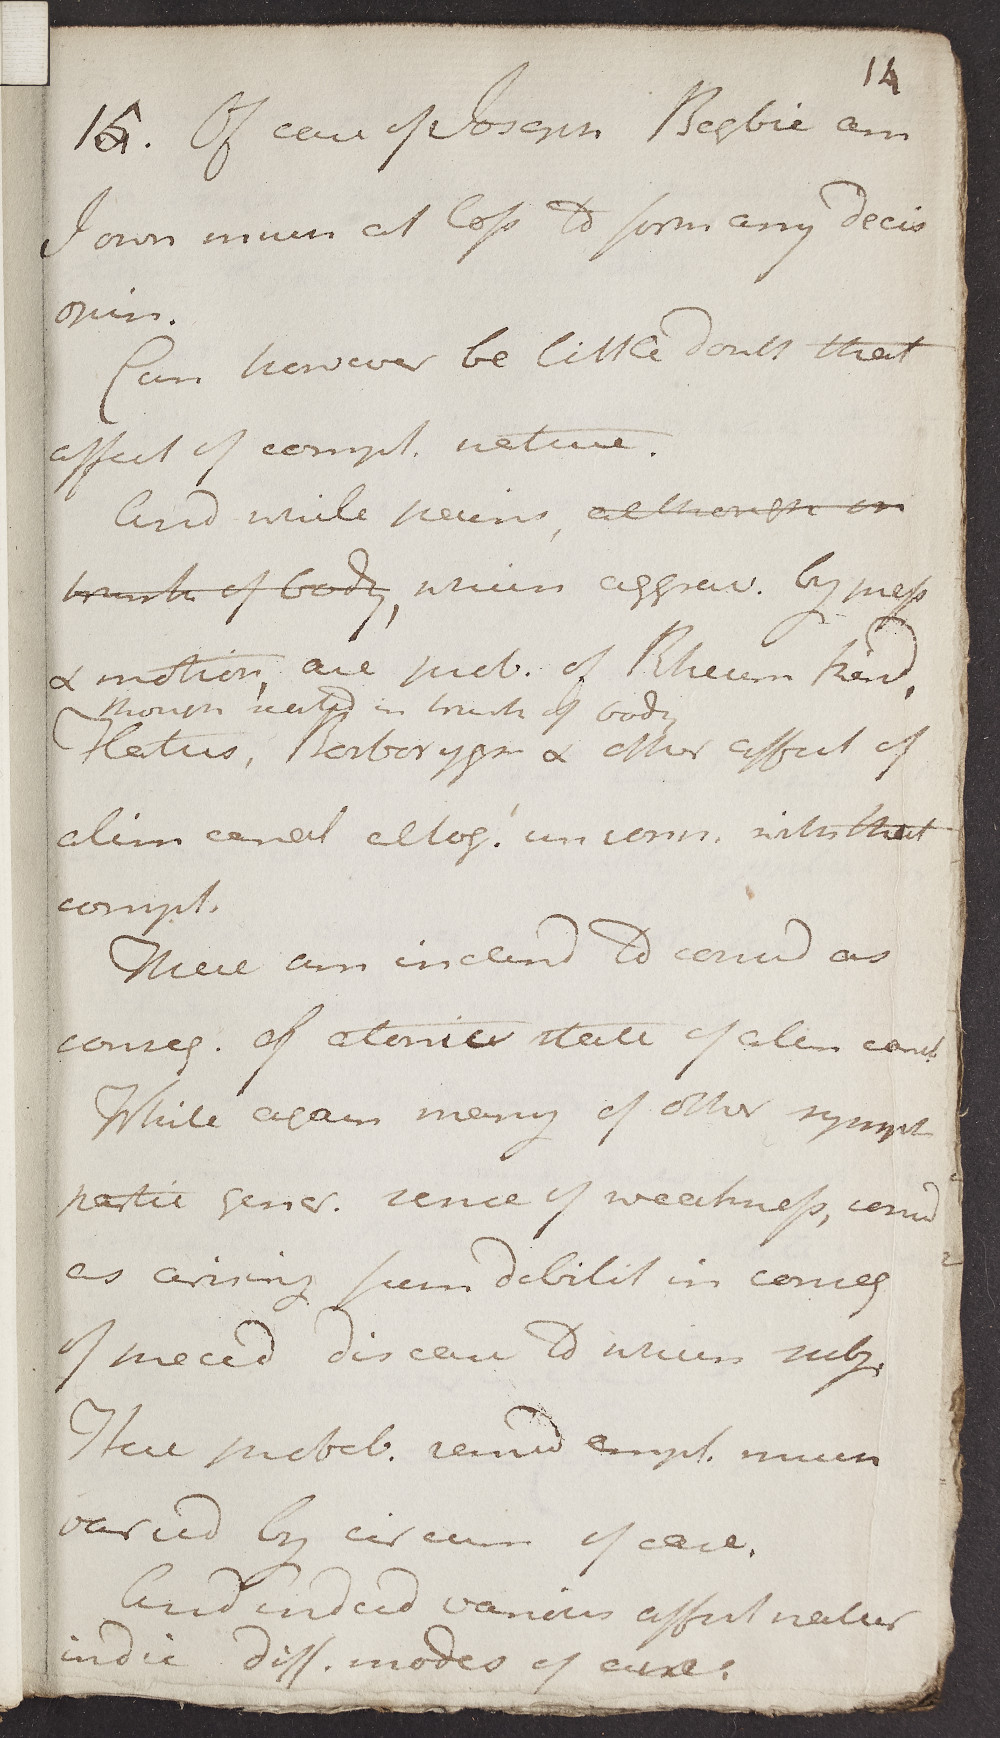 14
15. Of case of Joseph Begbie am
I own much at loss to form any decis
opin.
Can however be little doubt that
affect of compl. nature.
And while pains, although in
trunk of body, which aggrav. by press
& motion, are prob. of Rheum kind,
though seated in trunk of body
Flatus, Borborygm & other affect of
alim canal altog. unconn. with that
compl.
These am inclend to consid as
conseq. of atonic state of alim canal
While again many of other sympt
partic gener. sense of weakness, consid
as arising from debilit in conseq
of preced disease to which subj.
Here probab. remed empl. much
varied by circum of case.
And indeed various affect natur
indic diff. modes of cure.